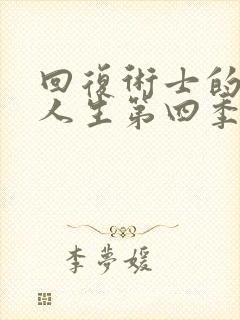 回復術士的
人生第四季
李夢媛